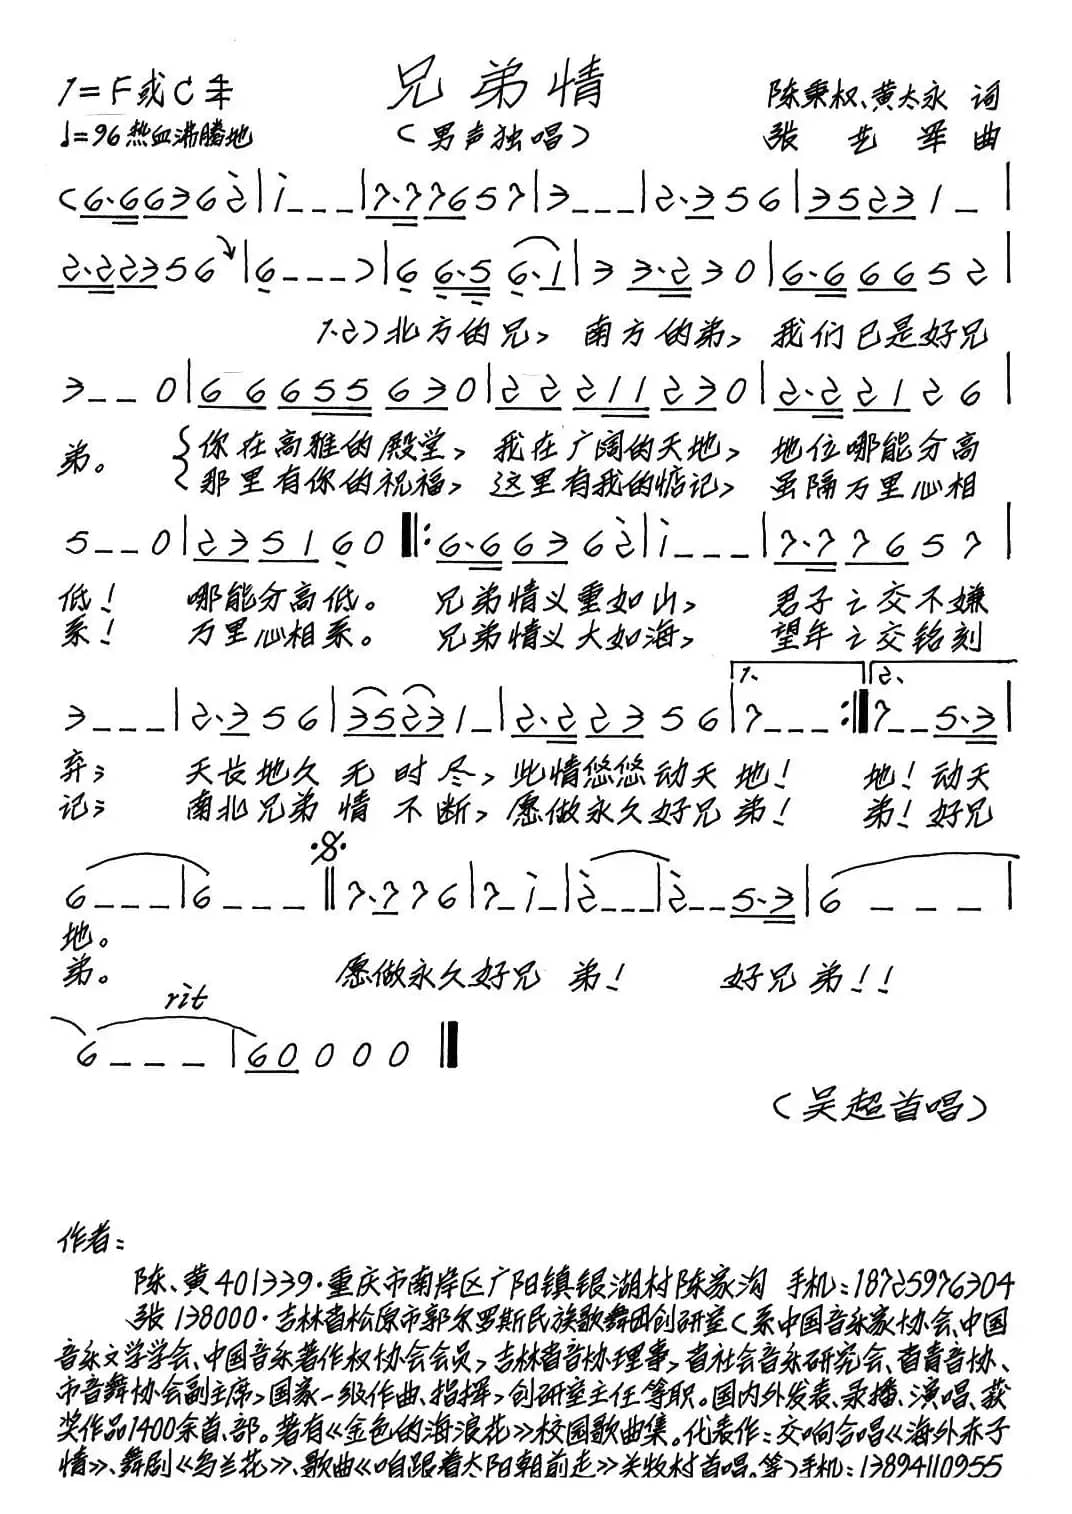 兄弟情
1=F或C 4/4
陈秉权、黄太永 词
♩=96 热血沸腾地
(男声独唱)
张艺军 曲
(6·6 6 3 6 2̇ | 1̇ - - - | 7·7 7 6 5 7 | 3 - - - | 2·3 5 6 | 3 5 2 3 1 - |
2·2 2 3 5 6 | 6 - - - ) | 6 6·5 6·1 | 3 3·2 3 0 | 6·6 6 6 5 2 |
1.2)北方的兄, 南方的弟, 我们已是好兄
3 - - 0 | 6 6 6 5 5 6 3 0 | 2 2 2 1 1 2 3 0 | 2·2 2 1 2 6 |
弟。 你在高雅的殿堂, 我在广阔的天地, 地位哪能分高
那里有你的祝福, 这里有我的惦记, 虽隔万里心相
5 - - 0 | 2 3 5 1 6 0 ‖: 6·6 6 3 6 2̇ | 1̇ - - - | 7·7 7 6 5 7 |
低! 哪能分高低。 兄弟情义重如山, 君子之交不嫌
系! 万里心相系。 兄弟情义大如海, 望年之交铭刻
3 - - - | 2·3 5 6 | 3 5 2 3 1 - | 2·2 2 3 5 6 | 1. 7 - - - :‖ 2. 7 - - 5·3 |
弃; 天长地久无时尽, 此情悠悠动天地! 地!动天
记; 南北兄弟情不断, 愿做永久好兄弟! 弟!好兄
6 - - - | 6 - - - ‖ 7·7 7 6 | 7 - 1̇ - | 2̇ - - - | 2̇ - - 5·3 | 6 - - - |
地。
弟。 愿做永久好兄弟! 好兄弟!!
rit
6 - - - | 6 0 0 0 0 ‖
(吴超首唱)
作者:
陈、黄401339·重庆市南岸区广阳镇银湖村陈家沟 手机:18725976304
张 138000·吉林省松原市郭尔罗斯民族歌舞团创研室(系中国音乐家协会、中国
音乐文学学会、中国音乐著作权协会会员,吉林省音协理事,省社会音乐研究会、省青音协、
市音舞协会副主席,国家一级作曲、指挥,创研室主任等职。国内外发表、录播、演唱、获
奖作品1400余首、部。著有《金色的海浪花》校园歌曲集。代表作:交响合唱《海外赤子
情》、舞剧《乌兰花》、歌曲《咱跟着太阳朝前走》关牧村首唱。等)手机:13894110955